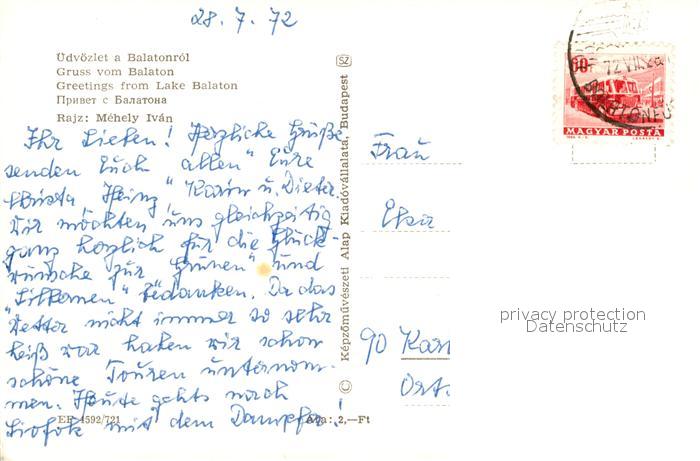 28.7.72
Üdvözlet a Balatonról
Gruss vom Balaton
Greetings from Lake Balaton
Привет с Балатона
Rajz: Méhely Iván
Ihr Lieben! Herzliche Grüße
senden Euch allen Eure
Heinz Karin u. Dieter.
Wir möchten uns gleichzeitig
ganz herzlich für die Glück-
wünsche zur "Grünen" und
"Silbernen" bedanken. Da das
Wetter nicht immer so sehr
heiß war haben wir schon
schöne Touren unternom-
men. Heute gehts nach
Siofok mit dem Dampfer!
EF 4592/721
Ára: 2,—Ft
Képzőművészeti Alap Kiadóvállalata, Budapest
SZ
Frau
90
Ort.
60
72 VII
MAGYAR POSTA
privacy protection
Datenschutz